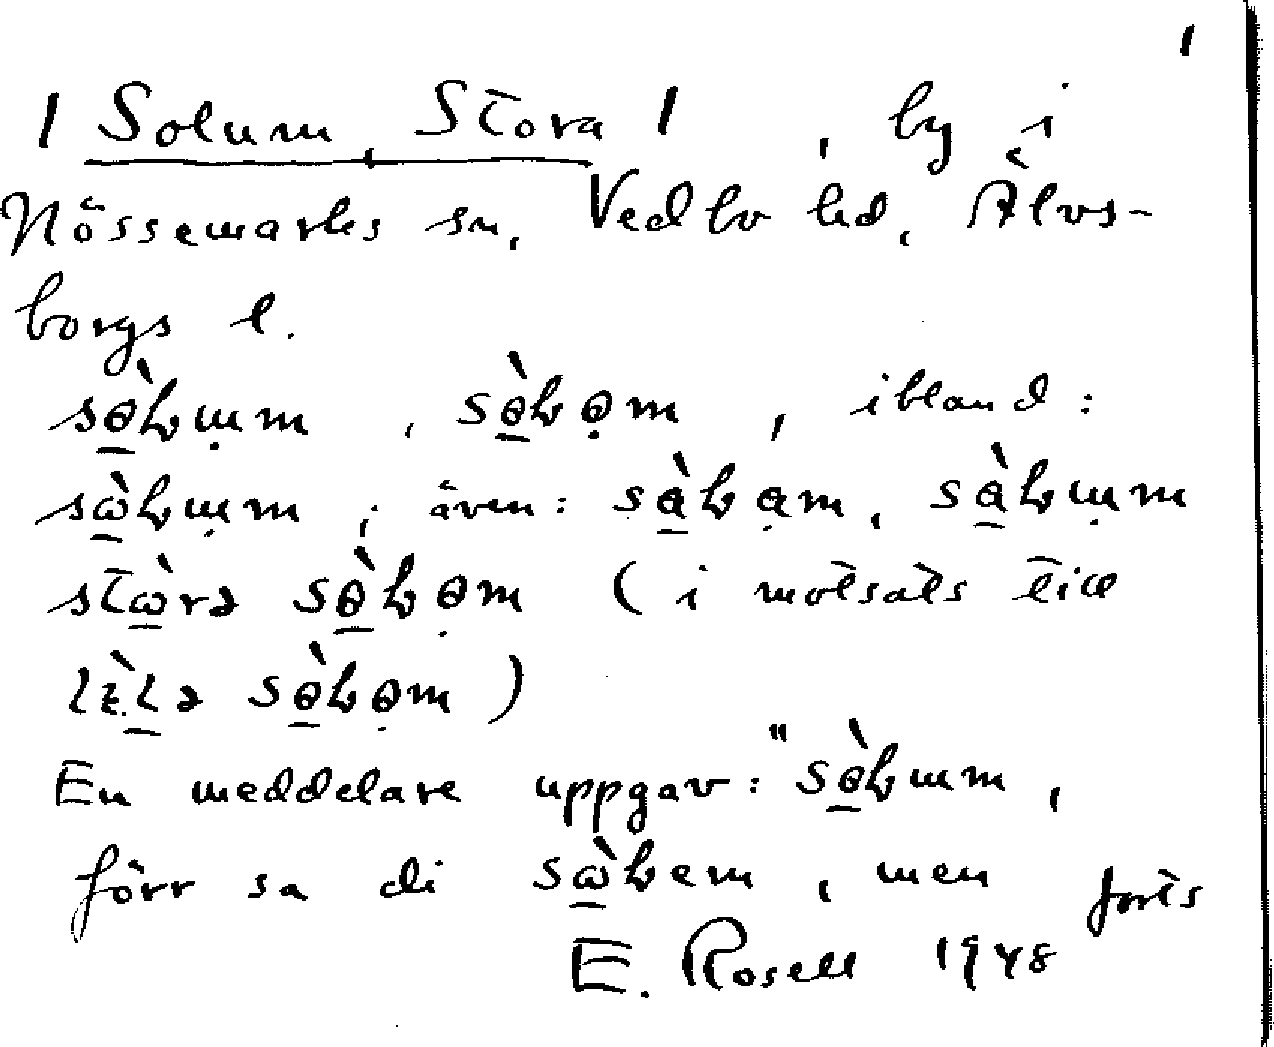 1
/ Solum, Stora / , by i
Nössemarks sn, Vedbo hd, Älvs-
borgs l.
sɵ̀ɽɯm , sɵ̀ɽɵm , ibland:
sὼɽɯm ; även: sàɽam, sàɽɯm
stὼrə sɵ̀ɽɵm ( i motsats till
lɪ̀lə sɵ̀ɽɵm )
En meddelare uppgav: "sɵ̀ɽɯm ,
förr sa di sὼɽem , men forts
E. Rosell 1948